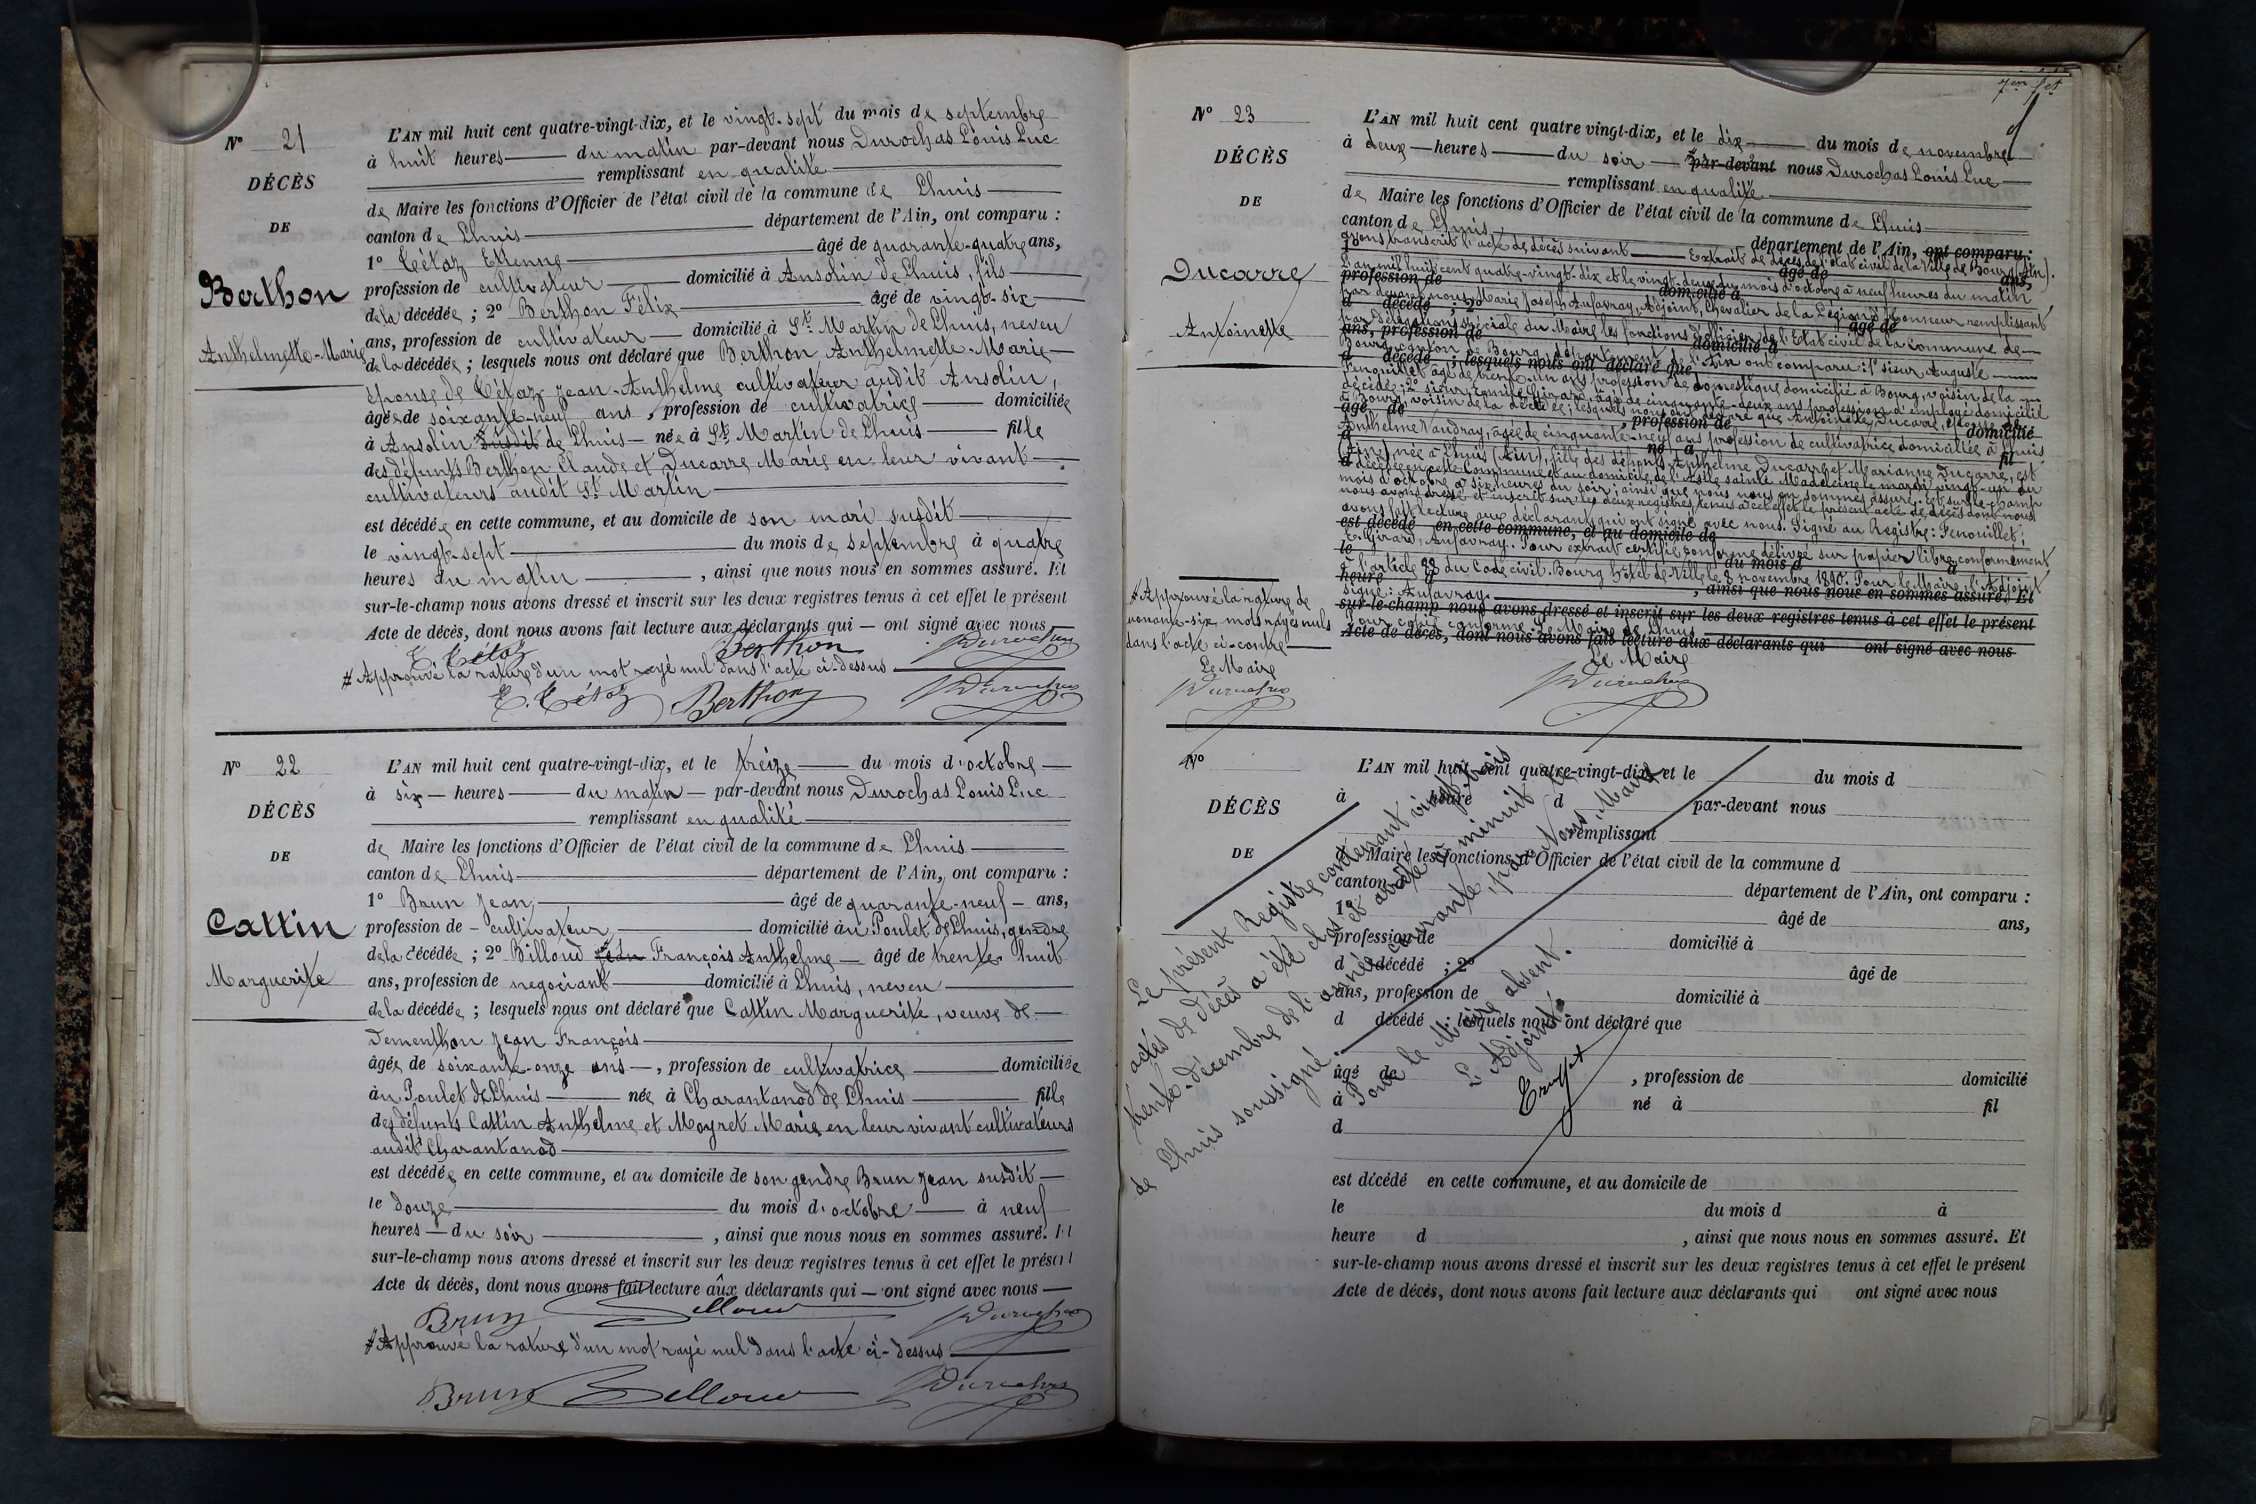 N° 21
DÉCÈS
DE
Berthon
Anthelmette-Marie
L'AN mil huit cent quatre-vingt-dix, et le vingt-sept du mois de septembre
à huit heures du matin par-devant nous Durochas Louis Luc
remplissant en qualité
de Maire les fonctions d'Officier de l'état civil de la commune de Lhuis
canton de Lhuis département de l'Ain, ont comparu :
1° Tétaz Etienne âgé de quarante-quatre ans,
profession de cultivateur domicilié à Ansolin de Lhuis, fils
de la décédée ; 2° Berthon Félix âgé de vingt-six
ans, profession de cultivateur domicilié à St. Martin de Lhuis, neveu
de la décédée ; lesquels nous ont déclaré que Berthon Anthelmette-Marie
épouse de Tétaz Jean-Anthelme cultivateur audit Ansolin,
âgée de soixante-neuf ans, profession de cultivatrice domiciliée
à Ansolin susdit de Lhuis née à St. Martin de Lhuis fille
des défunts Berthon Claude et Ducarre Marie en leur vivant
cultivateurs audit St. Martin
est décédée en cette commune, et au domicile de son mari susdit
le vingt-sept du mois de septembre à quatre
heures du matin, ainsi que nous nous en sommes assuré. Et
sur-le-champ nous avons dressé et inscrit sur les deux registres tenus à cet effet le présent
Acte de décès, dont nous avons fait lecture aux déclarants qui — ont signé avec nous
E. Tétaz Berthon Durochas
# Approuvé la rature d'un mot rayé nul dans l'acte ci-dessus
E. Tétaz Berthon Durochas
N° 22
DÉCÈS
DE
Cattin
Marguerite
L'AN mil huit cent quatre-vingt-dix, et le treize du mois d'octobre
à six heures du matin par-devant nous Durochas Louis Luc
remplissant en qualité
de Maire les fonctions d'Officier de l'état civil de la commune de Lhuis
canton de Lhuis département de l'Ain, ont comparu :
1° Brun Jean, âgé de quarante-neuf ans,
profession de cultivateur domicilié au Poulet de Lhuis, gendre
de la décédée ; 2° Billoud Jean François Anthelme âgé de trente-huit
ans, profession de negociant domicilié à Lhuis, neveu
de la décédée ; lesquels nous ont déclaré que Cattin Marguerite, veuve de
Dementhon Jean François
âgée de soixante-onze ans, profession de cultivatrice domiciliée
au Poulet de Lhuis née à Charantanod de Lhuis fille
des défunts Cattin Anthelme et Moyret Marie en leur vivant cultivateurs
audit Charantanod
est décédée en cette commune, et au domicile de son gendre Brun Jean susdit
le douze du mois d'octobre à neuf
heures du soir, ainsi que nous nous en sommes assuré. Et
sur-le-champ nous avons dressé et inscrit sur les deux registres tenus à cet effet le présent
Acte de décès, dont nous avons fait lecture aux déclarants qui — ont signé avec nous
Brun Billoud Durochas
# Approuvé la rature d'un mot rayé nul dans l'acte ci-dessus
Brun Billoud Durochas
N° 23
DÉCÈS
DE
Ducarre
Antoinette
L'AN mil huit cent quatre vingt-dix, et le dix du mois de novembre
à deux heures du soir par-devant nous Durochas Louis Luc
remplissant en qualité
de Maire les fonctions d'Officier de l'état civil de la commune de Lhuis
canton de Lhuis département de l'Ain, ont comparu :
avons transcrit l'acte de décès suivant Extrait de décès de l'état civil de la Ville de Bourg (Ain).
L'an mil huit cent quatre-vingt-dix et le vingt-deux du mois d'octobre à neuf heures du matin
par devant nous Marie Joseph Aufavray, Adjoint, Chevalier de la Légion d'honneur remplissant
par délégation spéciale du Maire les fonctions d'officier de l'Etat civil de la commune de
Bourg, canton de Bourg, département de l'Ain ont comparu : 1° sieur Auguste
Fenouillet âgé de trente-un ans profession de domestique domicilié à Bourg, voisin de la
décédée ; 2° sieur Emile Girard, âgé de cinquante-deux ans profession d'employé domicilié
à Bourg, voisin de la décédée ; lesquels nous ont déclaré que Antoinette Ducarre, épouse de
Anthelme Vaudray, âgée de cinquante-neuf ans profession de cultivatrice domiciliée à Lhuis
(Ain), née à Lhuis (Ain), fille des défunts Anthelme Ducarre et Marianne Ducarre, est
décédée en cette commune et au domicile de l'Asile sainte Madeleine le mardi vingt-un du
mois d'octobre à six heures du soir, ainsi que nous nous en sommes assuré. Et sur-le-champ
nous avons dressé et inscrit sur les deux registres tenus à cet effet le présent acte de décès dont nous
avons fait lecture aux déclarants qui ont signé avec nous. Signé au Registre : Fenouillet ;
E. Girard, Aufavray. Pour extrait certifié conforme délivré sur papier libre conformément
à l'article 82 du Code civil. Bourg Hôtel de Ville le 8 novembre 1890. Pour le Maire, l'Adjoint
signé : Aufavray.
Pour copie conforme Le Maire de Lhuis
est décédé en cette commune, et au domicile de
sur-le-champ nous avons dressé et inscrit sur les deux registres tenus à cet effet le présent
Acte de décès, dont nous avons fait lecture aux déclarants qui ont signé avec nous
Le Maire
Durochas
# Approuvé la rature de
nonante-six mots rayés nuls
dans l'acte ci-contre
Le Maire
Durochas
N°
DÉCÈS
DE
L'AN mil huit cent quatre-vingt-dix, et le du mois d
à heure d par-devant nous
remplissant
d Maire les fonctions d'Officier de l'état civil de la commune d
canton d département de l'Ain, ont comparu :
1° âgé de ans,
profession de domicilié à
d décédé ; 2° âgé de
ans, profession de domicilié à
d décédé ; lesquels nous ont déclaré que
âgé de, profession de domicilié
à né à fil
d
est décédé en cette commune, et au domicile de
le du mois d à
heure d, ainsi que nous nous en sommes assuré. Et
sur-le-champ nous avons dressé et inscrit sur les deux registres tenus à cet effet le présent
Acte de décès, dont nous avons fait lecture aux déclarants qui ont signé avec nous
Le présent Registre contenant vingt-trois
actes de décès a été clos et arrêté à minuit le
trente décembre de l'année courante, par Nous, Maire
de Lhuis soussigné.
Pour le Maire absent.
L'Adjoint.